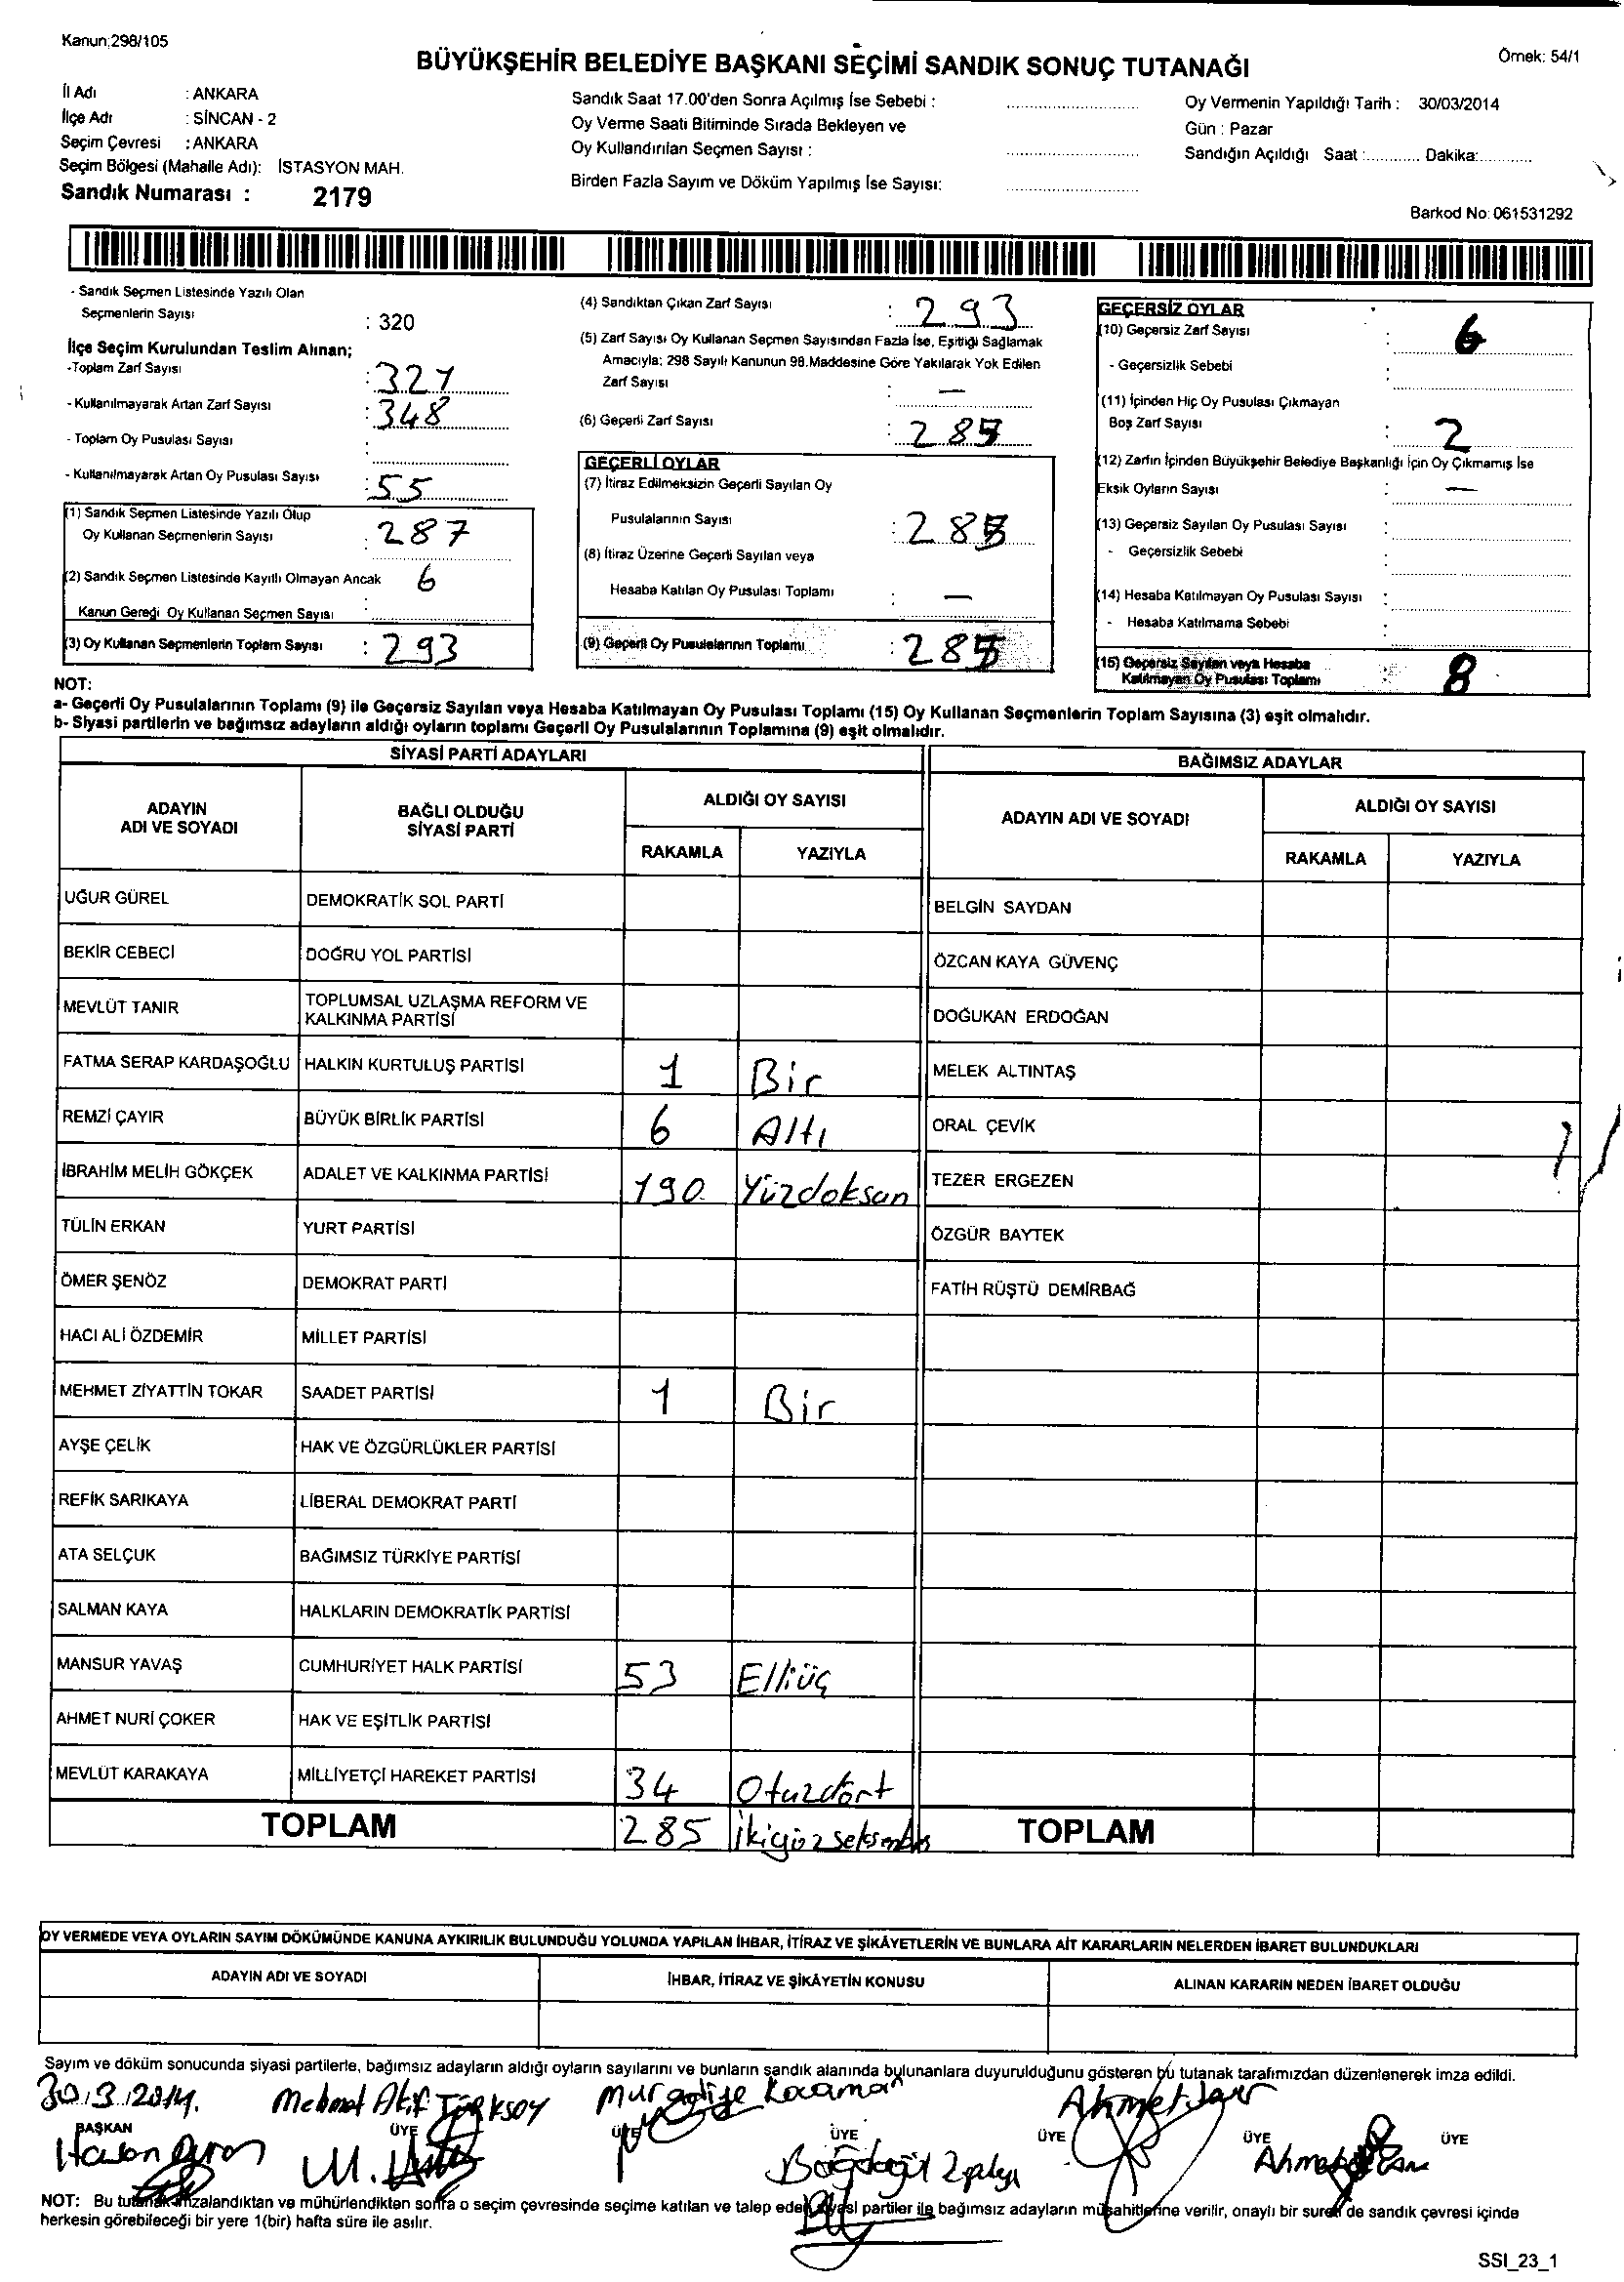 Kanun:298/105
BÜYÜKŞEHİR BELEDİYE BAŞKANI SEÇİMİ SANDIK SONUÇ TUTANAĞI
Örnek: 54/1
İl Adı : ANKARA
İlçe Adı : SİNCAN - 2
Seçim Çevresi : ANKARA
Seçim Bölgesi (Mahalle Adı): İSTASYON MAH.
Sandık Numarası : 2179
Sandık Saat 17.00'den Sonra Açılmış İse Sebebi :
Oy Verme Saati Bitiminde Sırada Bekleyen ve
Oy Kullandırılan Seçmen Sayısı :
Birden Fazla Sayım ve Döküm Yapılmış İse Sayısı:
Oy Vermenin Yapıldığı Tarih : 30/03/2014
Gün : Pazar
Sandığın Açıldığı Saat :............ Dakika:............
Barkod No: 061531292
- Sandık Seçmen Listesinde Yazılı Olan
Seçmenlerin Sayısı : 320
İlçe Seçim Kurulundan Teslim Alınan;
-Toplam Zarf Sayısı : 321
- Kullanılmayarak Artan Zarf Sayısı : 348
- Toplam Oy Pusulası Sayısı :
- Kullanılmayarak Artan Oy Pusulası Sayısı : 55
(1) Sandık Seçmen Listesinde Yazılı Olup
Oy Kullanan Seçmenlerin Sayısı : 287
(2) Sandık Seçmen Listesinde Kayıtlı Olmayan Ancak 6
Kanun Gereği Oy Kullanan Seçmen Sayısı :
(3) Oy Kullanan Seçmenlerin Toplam Sayısı : 293
(4) Sandıktan Çıkan Zarf Sayısı : 293
(5) Zarf Sayısı Oy Kullanan Seçmen Sayısından Fazla İse, Eşitliği Sağlamak
Amacıyla; 298 Sayılı Kanunun 98.Maddesine Göre Yakılarak Yok Edilen
Zarf Sayısı : —
(6) Geçerli Zarf Sayısı : 285
GEÇERLİ OYLAR
(7) İtiraz Edilmeksizin Geçerli Sayılan Oy
Pusulalarının Sayısı : 285
(8) İtiraz Üzerine Geçerli Sayılan veya
Hesaba Katılan Oy Pusulası Toplamı : —
(9) Geçerli Oy Pusulalarının Toplamı : 285
GEÇERSİZ OYLAR
(10) Geçersiz Zarf Sayısı : 6
- Geçersizlik Sebebi :
(11) İçinden Hiç Oy Pusulası Çıkmayan
Boş Zarf Sayısı : 2
(12) Zarfın İçinden Büyükşehir Belediye Başkanlığı İçin Oy Çıkmamış İse
Eksik Oyların Sayısı : —
(13) Geçersiz Sayılan Oy Pusulası Sayısı :
- Geçersizlik Sebebi :
(14) Hesaba Katılmayan Oy Pusulası Sayısı :
- Hesaba Katılmama Sebebi :
(15) Geçersiz Sayılan veya Hesaba
Katılmayan Oy Pusulası Toplamı : 8
NOT:
a- Geçerli Oy Pusulalarının Toplamı (9) ile Geçersiz Sayılan veya Hesaba Katılmayan Oy Pusulası Toplamı (15) Oy Kullanan Seçmenlerin Toplam Sayısına (3) eşit olmalıdır.
b- Siyasi partilerin ve bağımsız adayların aldığı oyların toplamı Geçerli Oy Pusulalarının Toplamına (9) eşit olmalıdır.
SİYASİ PARTİ ADAYLARI
ADAYIN ADI VE SOYADI
BAĞLI OLDUĞU SİYASİ PARTİ
ALDIĞI OY SAYISI
RAKAMLA YAZIYLA
UĞUR GÜREL DEMOKRATİK SOL PARTİ
BEKİR CEBECİ DOĞRU YOL PARTİSİ
MEVLÜT TANIR TOPLUMSAL UZLAŞMA REFORM VE
KALKINMA PARTİSİ
FATMA SERAP KARDAŞOĞLU HALKIN KURTULUŞ PARTİSİ 1 Bir
REMZİ ÇAYIR BÜYÜK BİRLİK PARTİSİ 6 Altı
İBRAHİM MELİH GÖKÇEK ADALET VE KALKINMA PARTİSİ 190 Yüzdoksan
TÜLİN ERKAN YURT PARTİSİ
ÖMER ŞENÖZ DEMOKRAT PARTİ
HACI ALİ ÖZDEMİR MİLLET PARTİSİ
MEHMET ZİYATTİN TOKAR SAADET PARTİSİ 1 Bir
AYŞE ÇELİK HAK VE ÖZGÜRLÜKLER PARTİSİ
REFİK SARIKAYA LİBERAL DEMOKRAT PARTİ
ATA SELÇUK BAĞIMSIZ TÜRKİYE PARTİSİ
SALMAN KAYA HALKLARIN DEMOKRATİK PARTİSİ
MANSUR YAVAŞ CUMHURİYET HALK PARTİSİ 53 Elliüç
AHMET NURİ ÇOKER HAK VE EŞİTLİK PARTİSİ
MEVLÜT KARAKAYA MİLLİYETÇİ HAREKET PARTİSİ 34 Otuzdört
TOPLAM 285 İkiyüzseksenbeş
BAĞIMSIZ ADAYLAR
ADAYIN ADI VE SOYADI
ALDIĞI OY SAYISI
RAKAMLA YAZIYLA
BELGİN SAYDAN
ÖZCAN KAYA GÜVENÇ
DOĞUKAN ERDOĞAN
MELEK ALTINTAŞ
ORAL ÇEVİK
TEZER ERGEZEN
ÖZGÜR BAYTEK
FATİH RÜŞTÜ DEMİRBAĞ
TOPLAM
OY VERMEDE VEYA OYLARIN SAYIM DÖKÜMÜNDE KANUNA AYKIRILIK BULUNDUĞU YOLUNDA YAPILAN İHBAR, İTİRAZ VE ŞİKÂYETLERİN VE BUNLARA AİT KARARLARIN NELERDEN İBARET BULUNDUKLARI
ADAYIN ADI VE SOYADI
İHBAR, İTİRAZ VE ŞİKÂYETİN KONUSU
ALINAN KARARIN NEDEN İBARET OLDUĞU
Sayım ve döküm sonucunda siyasi partilerle, bağımsız adayların aldığı oyların sayılarını ve bunların sandık alanında bulunanlara duyurulduğunu gösteren bu tutanak tarafımızdan düzenlenerek imza edildi.
30.3.2014. Mehmet Akif Muradiye Karaman Ahmet
BAŞKAN ÜYE ÜYE ÜYE ÜYE ÜYE ÜYE
Hasan Ahmet
NOT: Bu tutanak imzalandıktan ve mühürlendikten sonra o seçim çevresinde seçime katılan ve talep eden siyasi partiler ile bağımsız adayların müşahitlerine verilir, onaylı bir sureti de sandık çevresi içinde
herkesin görebileceği bir yere 1(bir) hafta süre ile asılır.
SSI_23_1